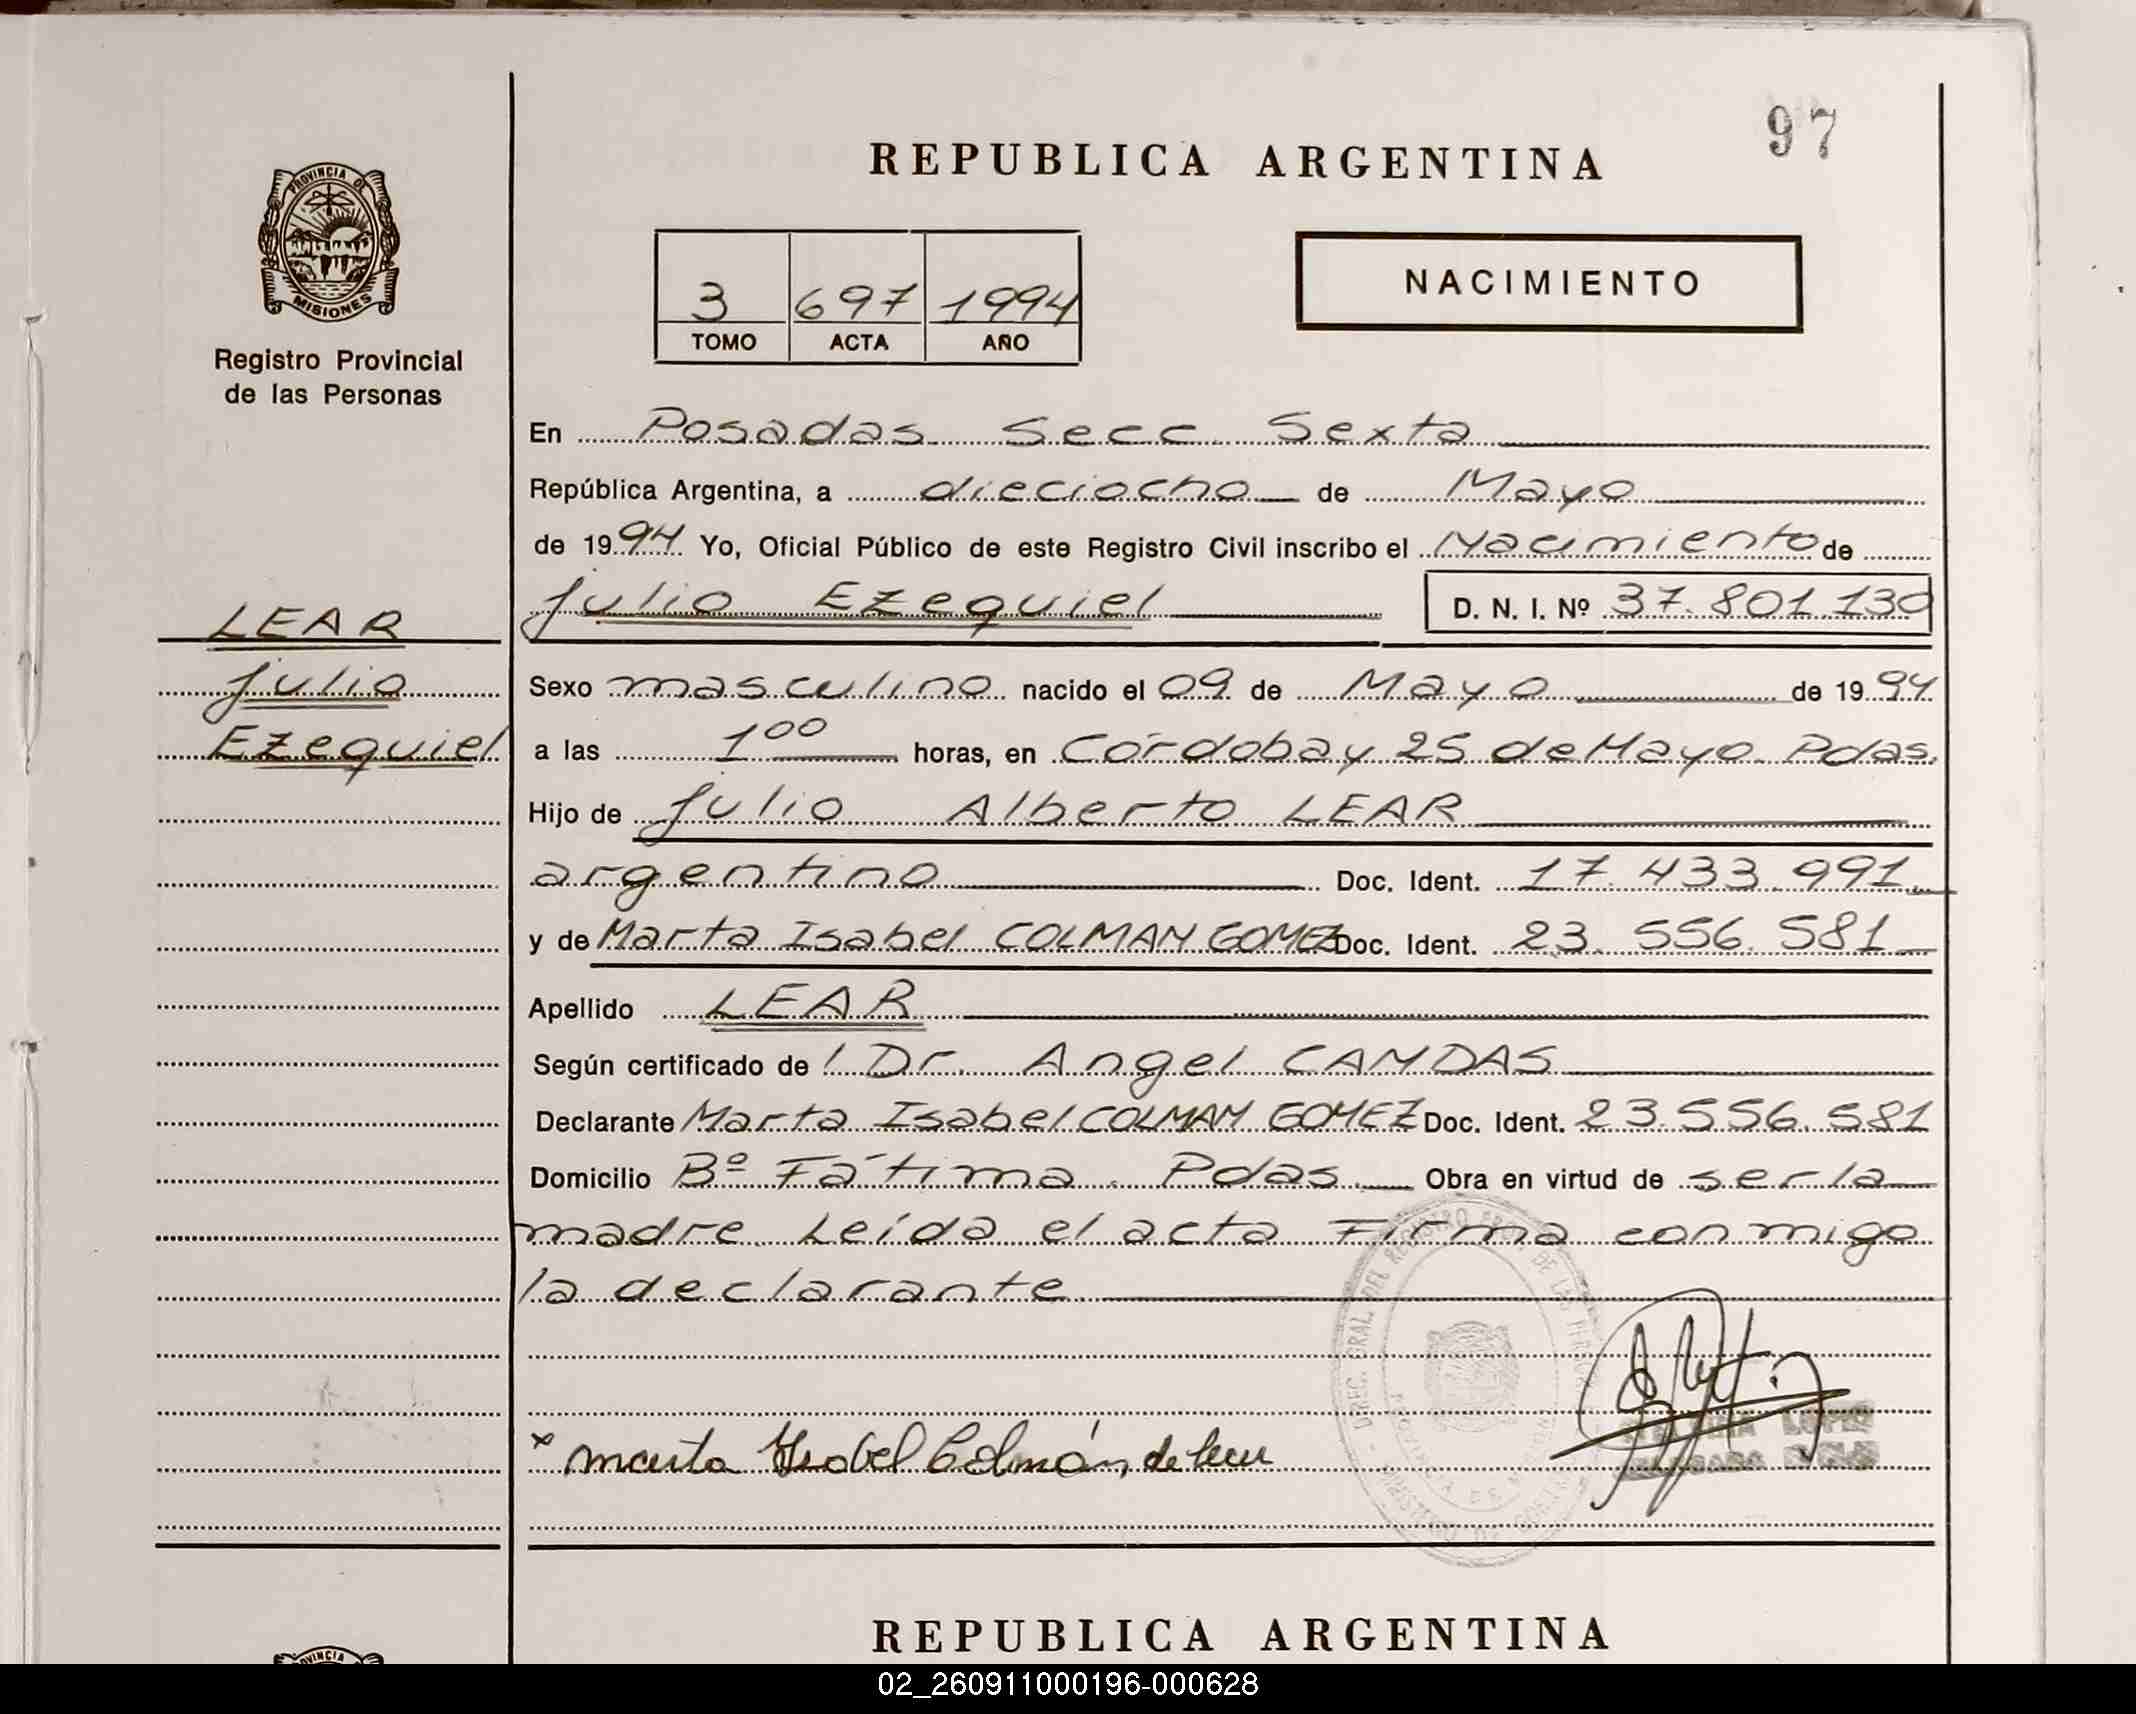 97
REPUBLICA ARGENTINA
PROVINCIA DE
MISIONES
Registro Provincial
de las Personas
3 697 1994
TOMO ACTA AÑO
NACIMIENTO
En Posadas Secc Sexta
República Argentina, a dieciocho de Mayo
de 1994 Yo, Oficial Público de este Registro Civil inscribo el Nacimiento de
Julio Ezequiel D. N. I. Nº 37.801.130
LEAR
Julio
Ezequiel
Sexo masculino nacido el 09 de Mayo de 1994
a las 1 00 horas, en Córdoba y 25 de Mayo. Pdas.
Hijo de Julio Alberto LEAR
argentino Doc. Ident. 17.433.991
y de Marta Isabel COLMAN GOMEZ Doc. Ident. 23.556.581
Apellido LEAR
Según certificado de Dr. Angel CAMDAS
Declarante Marta Isabel COLMAN GOMEZ Doc. Ident. 23.556.581
Domicilio Bº Fátima. Pdas. Obra en virtud de ser la
madre. Leída el acta Firma conmigo
la declarante.
x Marta Ysabel Colmán de Lear
REPUBLICA ARGENTINA
02_260911000196-000628